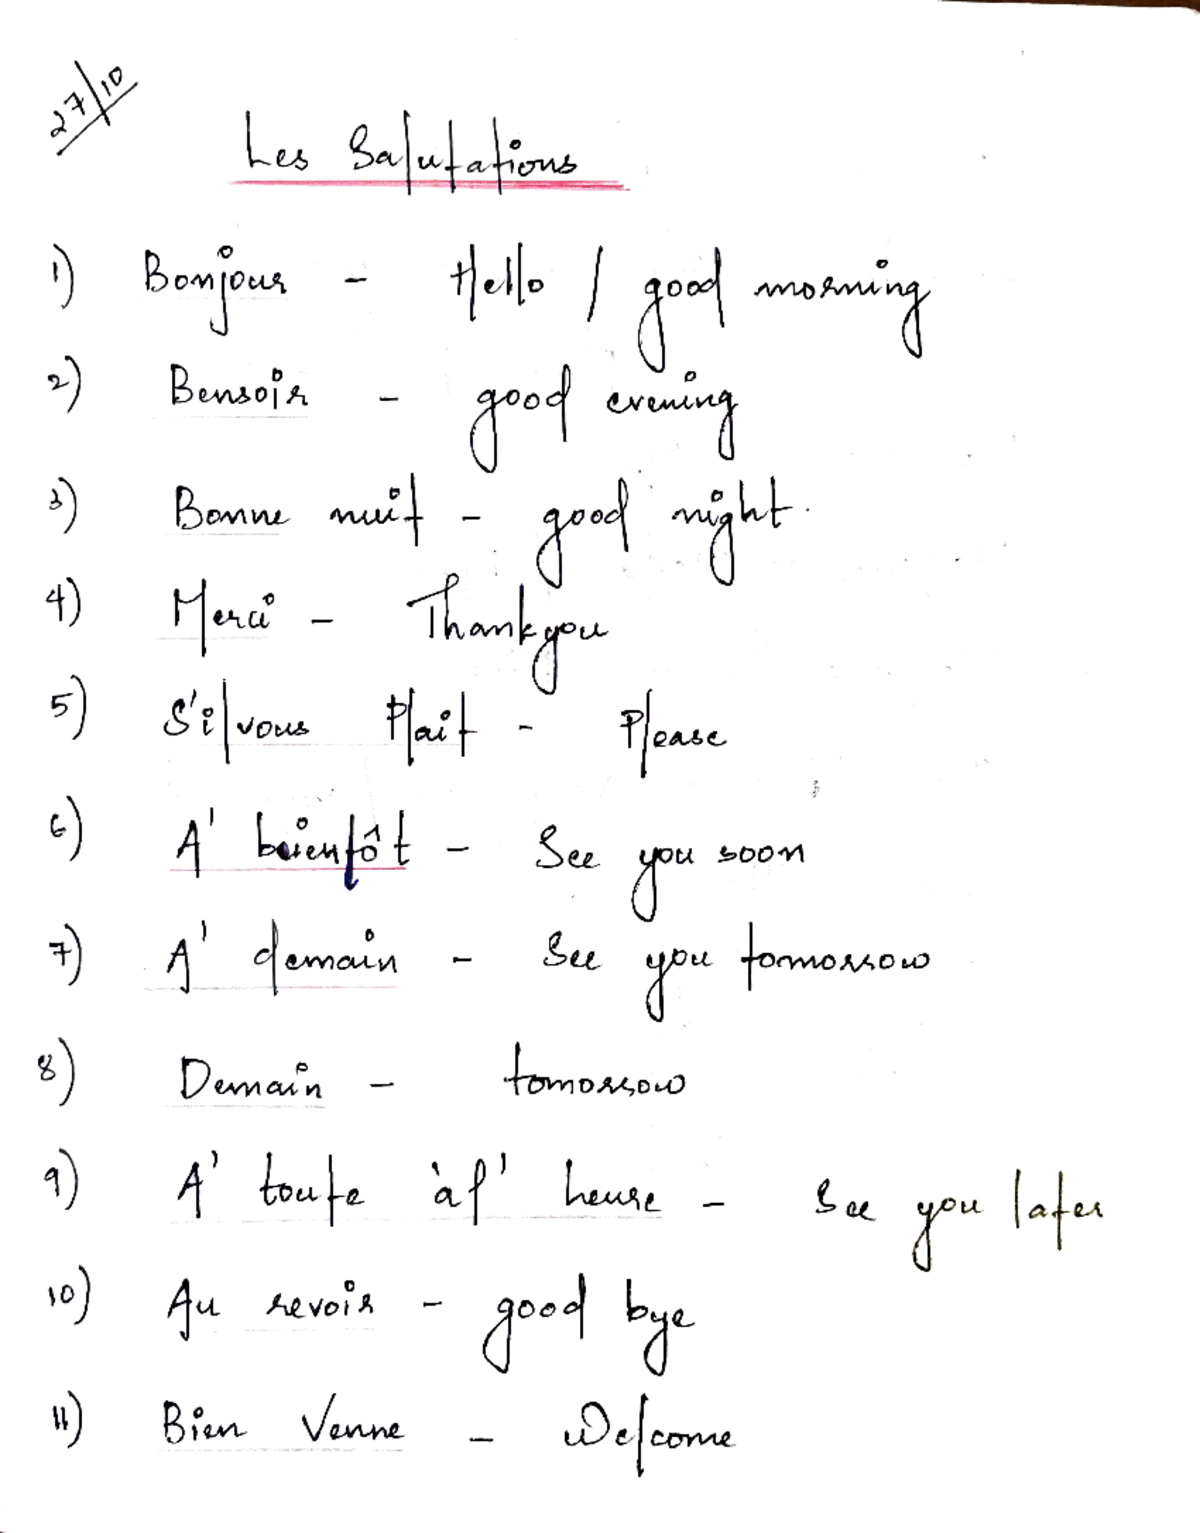 27/10
Les Salutations
1) Bonjour - Hello / good morning
2) Bensoir - good evening
3) Bonne nuit - good night.
4) Merci - Thankyou
5) S'ilvous Plait - Please
6) A' bientôt - See you soon
7) A' demain - See you tomorrow
8) Demain - tomorrow
9) A' toute àl' heure - See you later
10) Au revoir - good bye
11) Bien Venne - Welcome